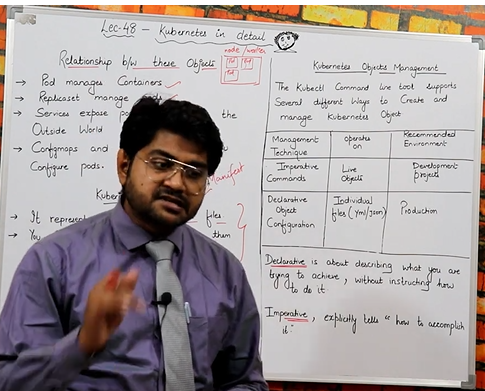 Lec-48 - Kubernetes in detail
node / worker
Pod Pod
Pod
Relationship b/w these Objects
→ Pod manages Containers
→ Replicaset manage
→ Services expose the
Outside World
→ Configmaps and
Configure pods.
Manifest
→ It represent files
→ You them
Kubernetes Objects Management
The Kubectl Command line tool supports
Several different Ways to Create and
manage Kubernetes Object
Management Technique operates on Recommended Environment
Imperative Commands Live Objects Development projects
Declarative Object Configuration Individual files (Yml/Json) Production
Declarative is about describing what you are
trying to achieve, without instructing how
to do it
Imperative, explicitly tells "how to accomplish
it"